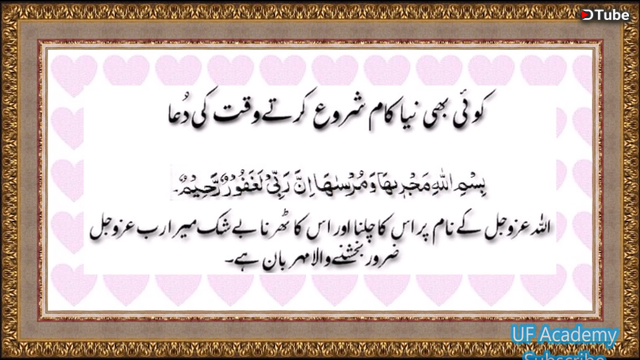 DTube
کوئی بھی نیا کام شروع کرتے وقت کی دُعا
بِسْمِ اللهِ مَجْرٖىهَا وَمُرْسٰىهَا اِنَّ رَبِّیْ لَغَفُوْرٌ رَّحِیْمٌ۔
اللہ عزوجل کے نام پر اس کا چلنا اور اس کا ٹھرنا بے شک میرا رب عزوجل
ضرور بخشنے والا مہربان ہے۔
UF Academy
Subscribe